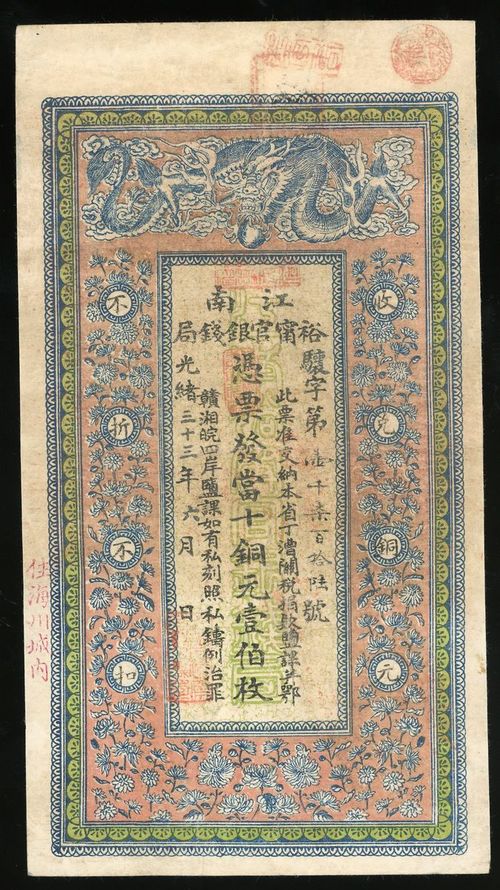 江南
裕甯官銀錢局
驤字第陸千柒百拾陸號
此票准交納本省丁漕關稅捐款鹽課并鄂
憑票發當十銅元壹佰枚
贛湘皖四岸鹽課如有私刻照私鑄例治罪
光緒三十三年六月 日
收兌銅元
不折不扣
住海川城內